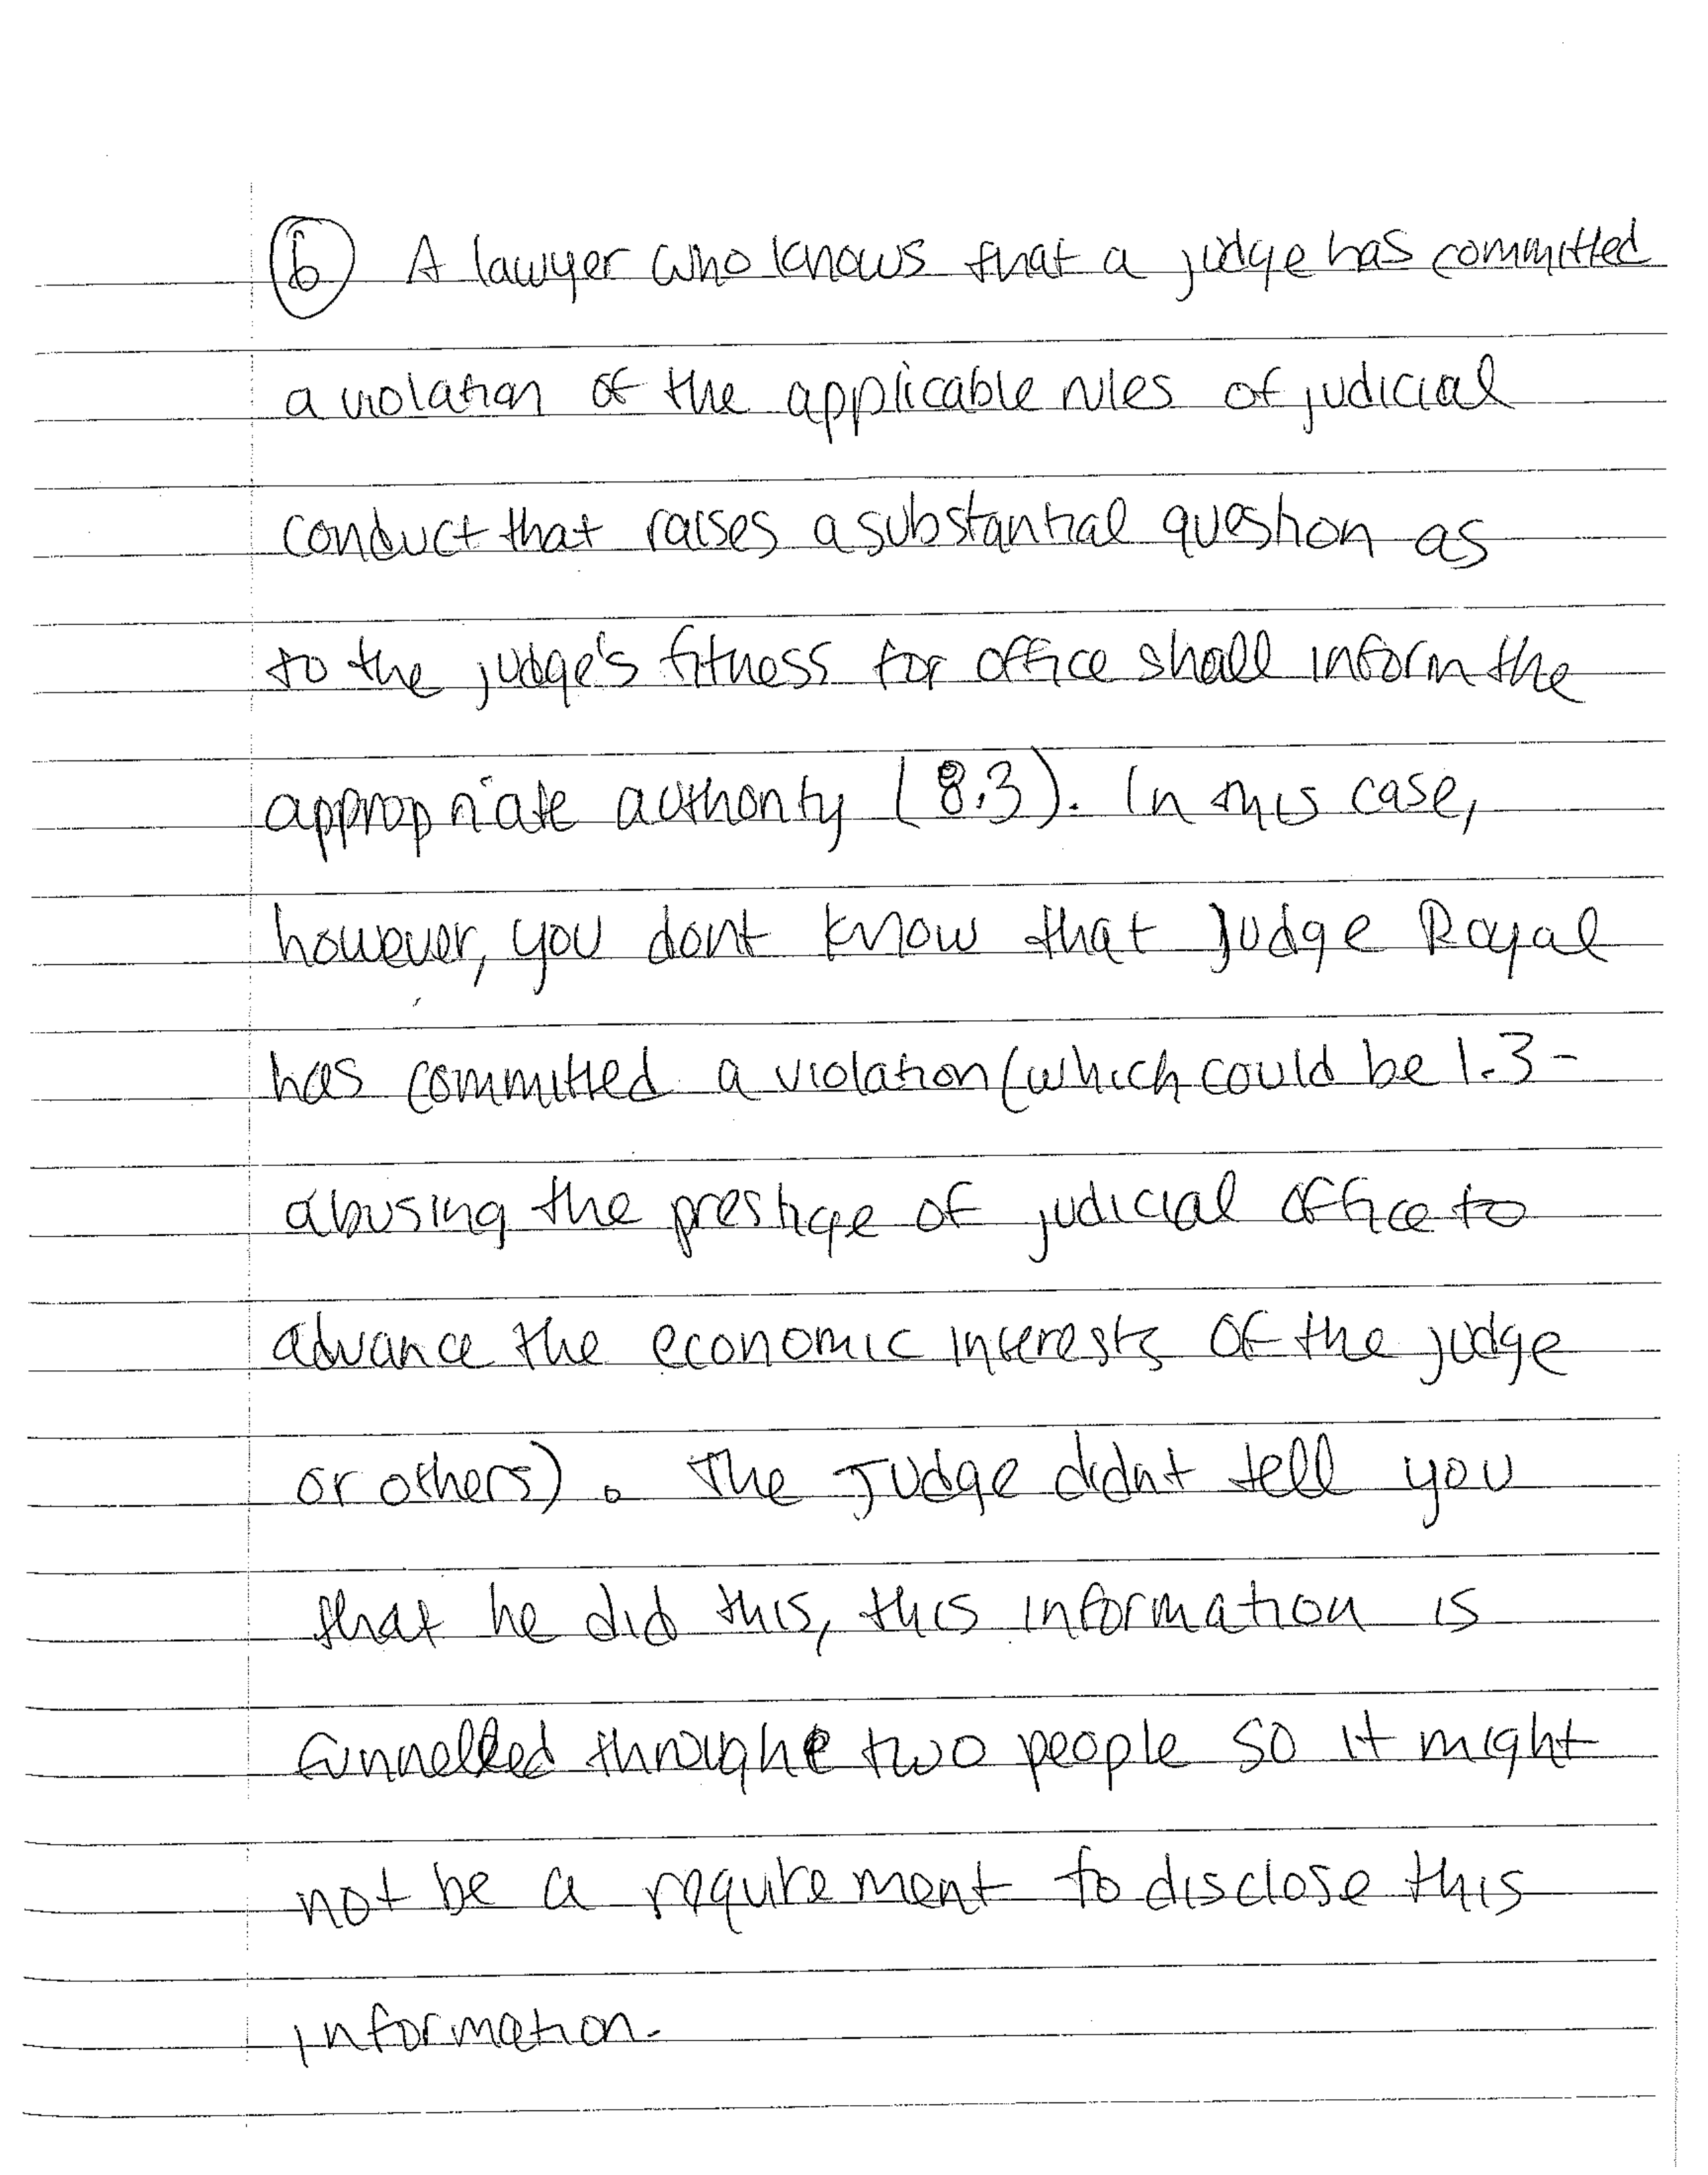 6 A lawyer who knows that a judge has committed
a violation of the applicable rules of judicial
conduct that raises a substantial question as
to the judge's fitness for office shall inform the
appropriate authority (8.3). In this case,
however, you dont know that Judge Royal
has committed a violation (which could be 1.3 -
abusing the prestige of judicial office to
advance the economic interests of the judge
or others). The Judge didnt tell you
that he did this, this information is
funnelled through two people so it might
not be a requirement to disclose this
information.